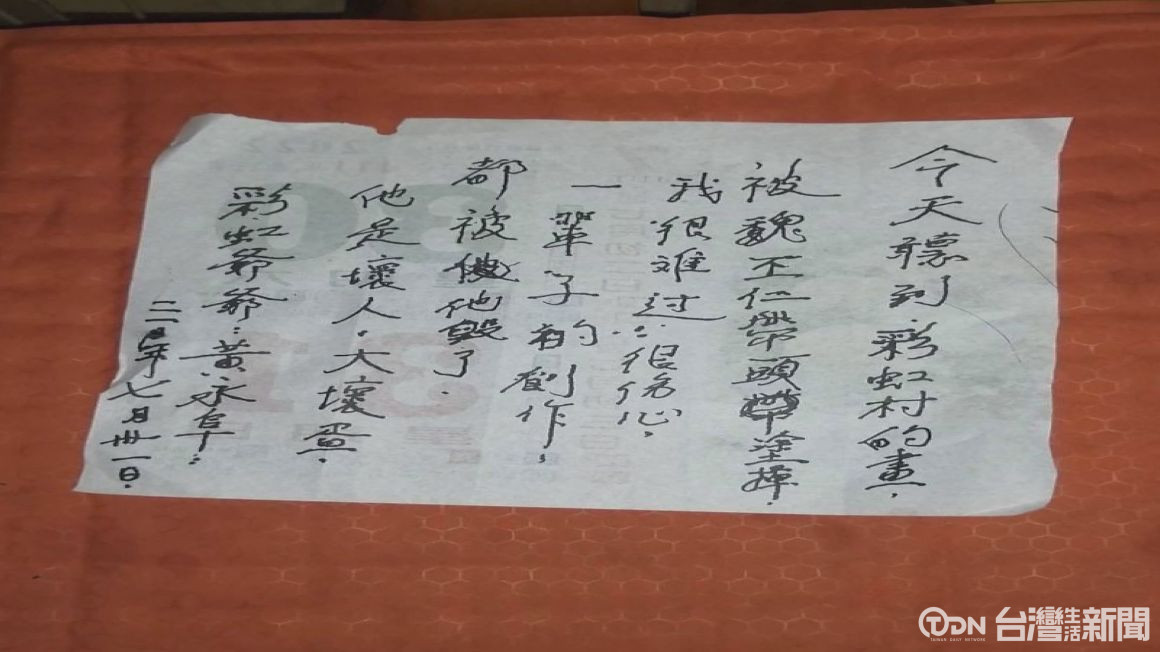 今天聽到彩虹村的畫.
被魏丕仁帶頭塗掉.
我很难过..很伤心.
一輩子的創作.
都被他毀了.
他是壞人.大壞蛋.
彩虹爺爺:黃永阜.
年七月卅一日.
TDN 台灣生活新聞
TAIWAN DAILY NETWORK